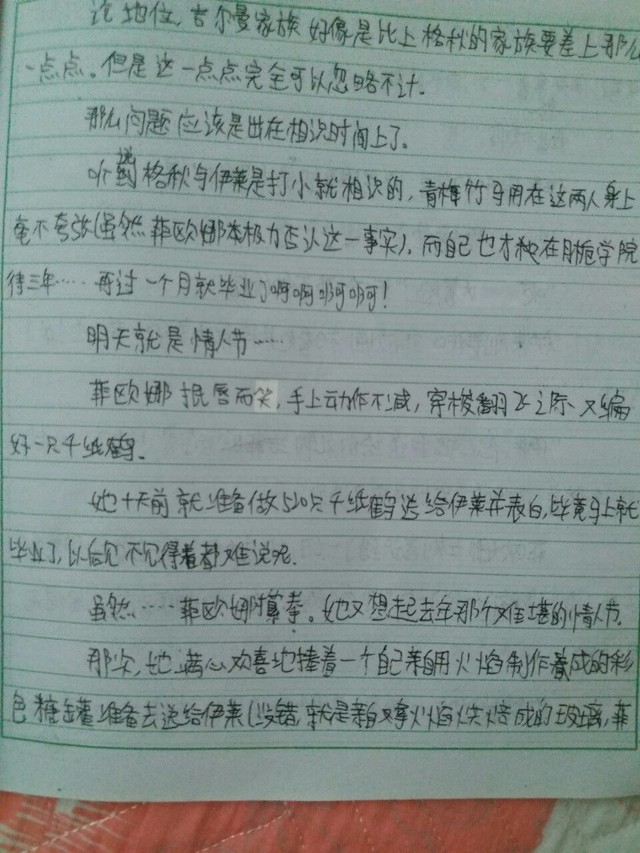 论地位,吉尔曼家族好像是比上格秋的家族要差上那么
一点点。但是这一点点完全可以忽略不计.
那么问题应该是出在相识时间上了。
格秋与伊莱是打小就相识的,青梅竹马用在这两人身上
毫不夸张(虽然菲欧娜本极力否认这一事实),而自己也才她在月栀学院
待三年……再过一个月就毕业了啊啊啊啊!
明天就是情人节……
菲欧娜抿唇而笑,手上动作不减,穿梭翻飞之际又编
好一只千纸鹤.
她十天前就准备做520只千纸鹤送给伊莱并表白,毕竟马上就
毕业了,以后见不见得着都难说呢.
虽然……菲欧娜攥拳。她又想起去年那个难堪的情人节.
那次,她满心欢喜地捧着一个自己亲用火焰制作成的彩
色糖罐准备去送给伊莱(没错,就是亲火焰烧成的玻璃,菲